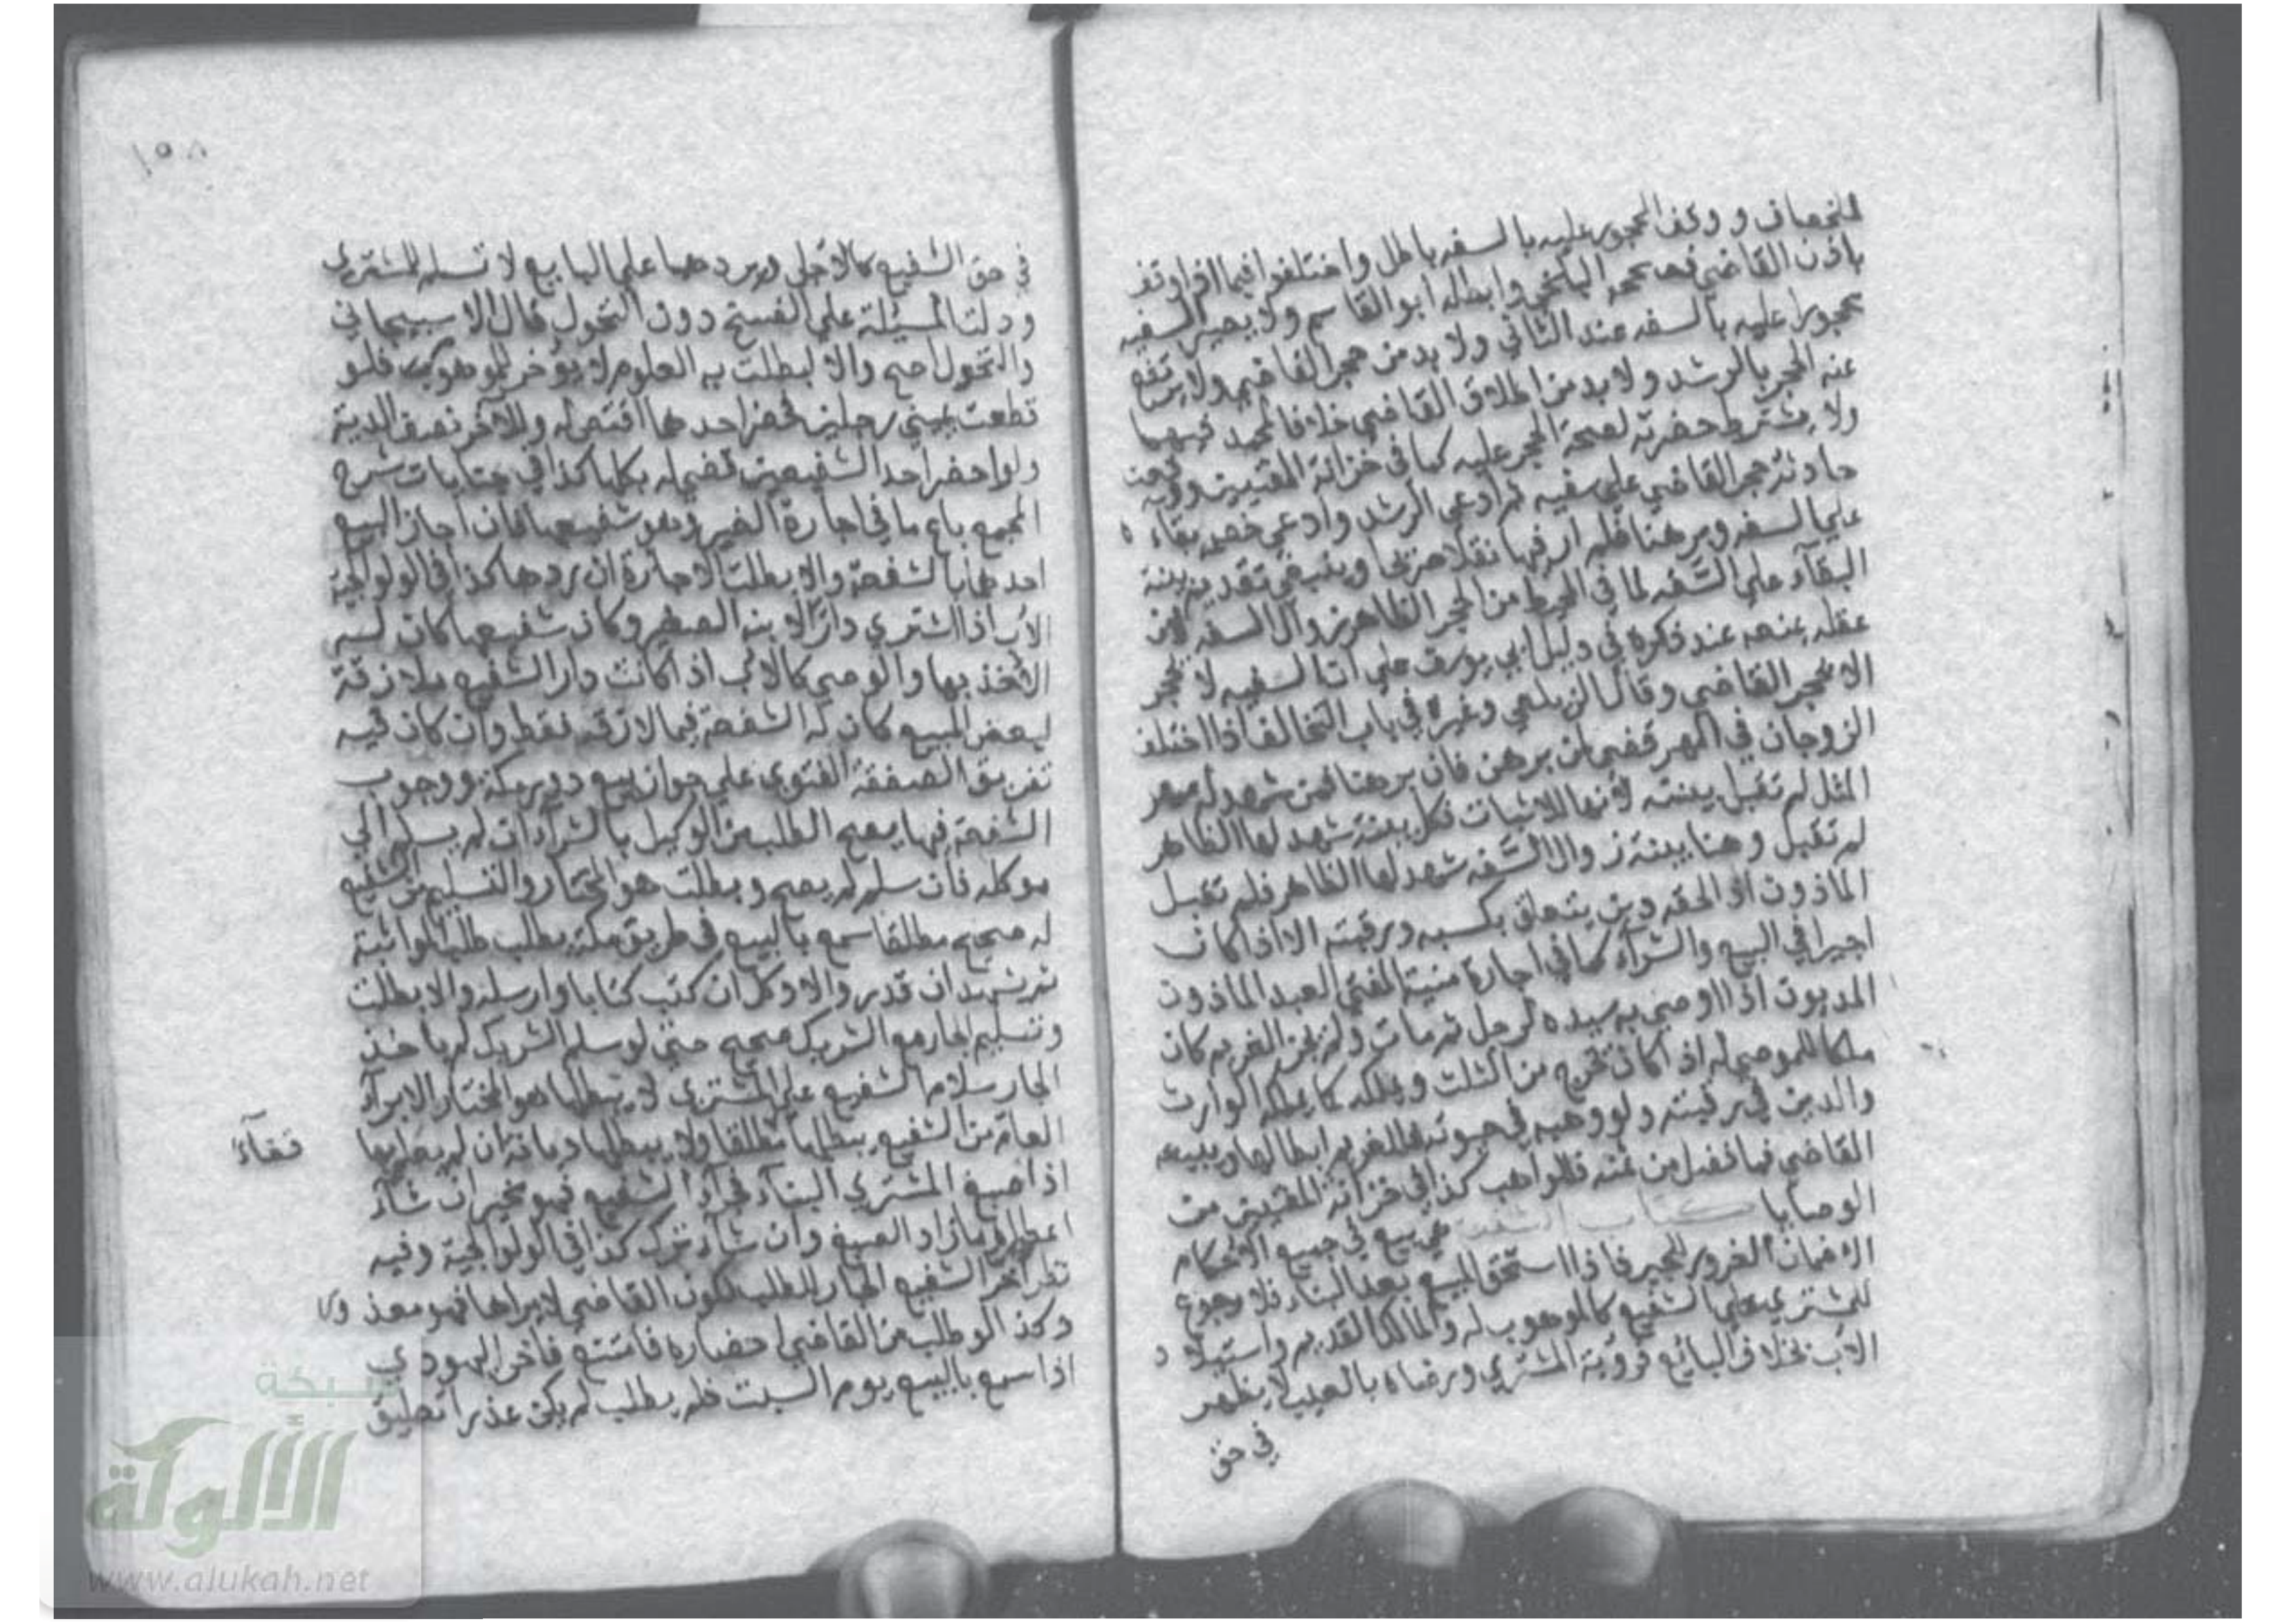 للخصاف ووقف المحجور عليه بالسفه باطل واختلفوا فيما اذا وقف
باذن القاضي فصححه البلخي وابطله ابو القاسم ولا يصير السفيه
محجورا عليه بالسفه عند الثاني ولا بد من حجر القاضي ولا يرتفع
عنه الحجر بالرشد ولا بد من اطلاق القاضي خلافا لمحمد فيهما
ولا يشترط حضرته لصحة الحجر عليه كما في خزانة المفتيين ووقعت
حادثة حجر القاضي على سفيه ثم ادعى الرشد وادعى خصمه بقاءه
على السفه وبرهنا فلم ار فيها نقلا صريحا وينبغي تقديم بينة
البقآء على السفه لما في المحيط من الحجر الظاهر زوال السفه لان
عقله يمنعه عند ذكره في دليل ابي يوسف على ان السفيه لا ينحجر
الا بحجر القاضي وقال الزيلعي وغيره في باب التحالف اذا اختلف
الزوجان في المهر قضي لمن برهن فان برهنا فمن شهد له مهر
المثل لم تقبل بينته لأنها للاثبات فكل بينة شهد لها الظاهر
لم تقبل وهنا بينة زوال السفه شهد لها الظاهر فلم تقبل
الماذون اذا لحقه دين يتعلق بكسبه ورقبته الا اذا كان
اجيرا في البيع والشرآء كما في اجارة منية المفتي العبد الماذون
المديون اذا اوصى به سيده لرجل ثم مات ولم يجز الغريم كان
ملكا للموصى له اذا كان تخرج من الثلث ويملكه كما يملكه الوارث
والدين في رقبته ولو وهبه في حيوته فللغريم ابطالها ويبيعه
القاضي فما فضل من ثمنه فللواهب كذا في خزانة المفتيين من
الوصايا كتاب الشفعة هي بيع في جميع الاحكام
الا ضمان الغرور للجبر فاذا استحق المبيع بعد البناء فلا رجوع
للمشتري على الشفيع كالموهوب له والمالك القديم واستيلاد
الاب بخلاف البائع فرؤية المشتري ورضاه بالعيب لا يظهر
في حق
١٥٨
في حق الشفيع كالاجل ويردهما على البايع لا تسلم للمشتري
ودلت المسئلة على الفسخ دون التحول قال الاسبيجابي
والتحول اصح والا لبطلت به المعلوم لا يؤخر للموهوم فلو
قطعت يميني رجلين فحضر احدهما اقتص له وللاخر نصف الدية
ولو احضر احد الشفيعين قضي له بكلها كذا في جنايات شرح
المجمع باع ما في اجارة الغير وهو شفيعها فان اجاز البيع
اخذها بالشفعة والا بطلت الاجارة ان ردها كذا في الولوالجية
الاب اذا اشترى دارا لابنه الصغير وكان شفيعها كان له
الاخذ بها والوصي كالاب اذا كانت دار الشفيع ملازقة
لبعض المبيع كان له الشفعة فيما لازقه فقط وان كان فيه
تفريق الصفقة الفتوى على جواز بيع دور مكة ووجوب
الشفعة فيها يصح الطلب من الوكيل بالشرآء ان لم يسلم الى
موكله فان سلم لم يصح وبطلت هو المختار والتسليم من الشفيع
له صحيح مطلقا سمع بالبيع في طريق مكة يطلب طلب المواثبة
ثم يشهد ان قدر والا وكل ان كتب كتابا وارسله والا بطلت
وتسليم الجار مع الشريك صحيح حتى لو سلم الشريك لم ياخذ
الجار سلام الشفيع على المشتري لا يبطلها هو المختار الابرآء
العام من الشفيع يبطلها مطلقا ولا يبطلها ديانة ان لم يعلم بها
قضآءً
اذا صبغ المشتري البنآء فجآء الشفيع فهو مخير ان شآء
اعطاه ما زاد الصبغ وان شآء ترك كذا في الولوالجية وفيه
نظر اخر الشفيع الجار للطلب لكون القاضي لا يراها فهو معذور
وكذا لو طلب من القاضي احضاره فامتنع فاخر اليهودي
اذا سمع بالبيع يوم السبت فلم يطلب لم يكن عذرا تعليق
شبكة
الألوكة
www.alukah.net